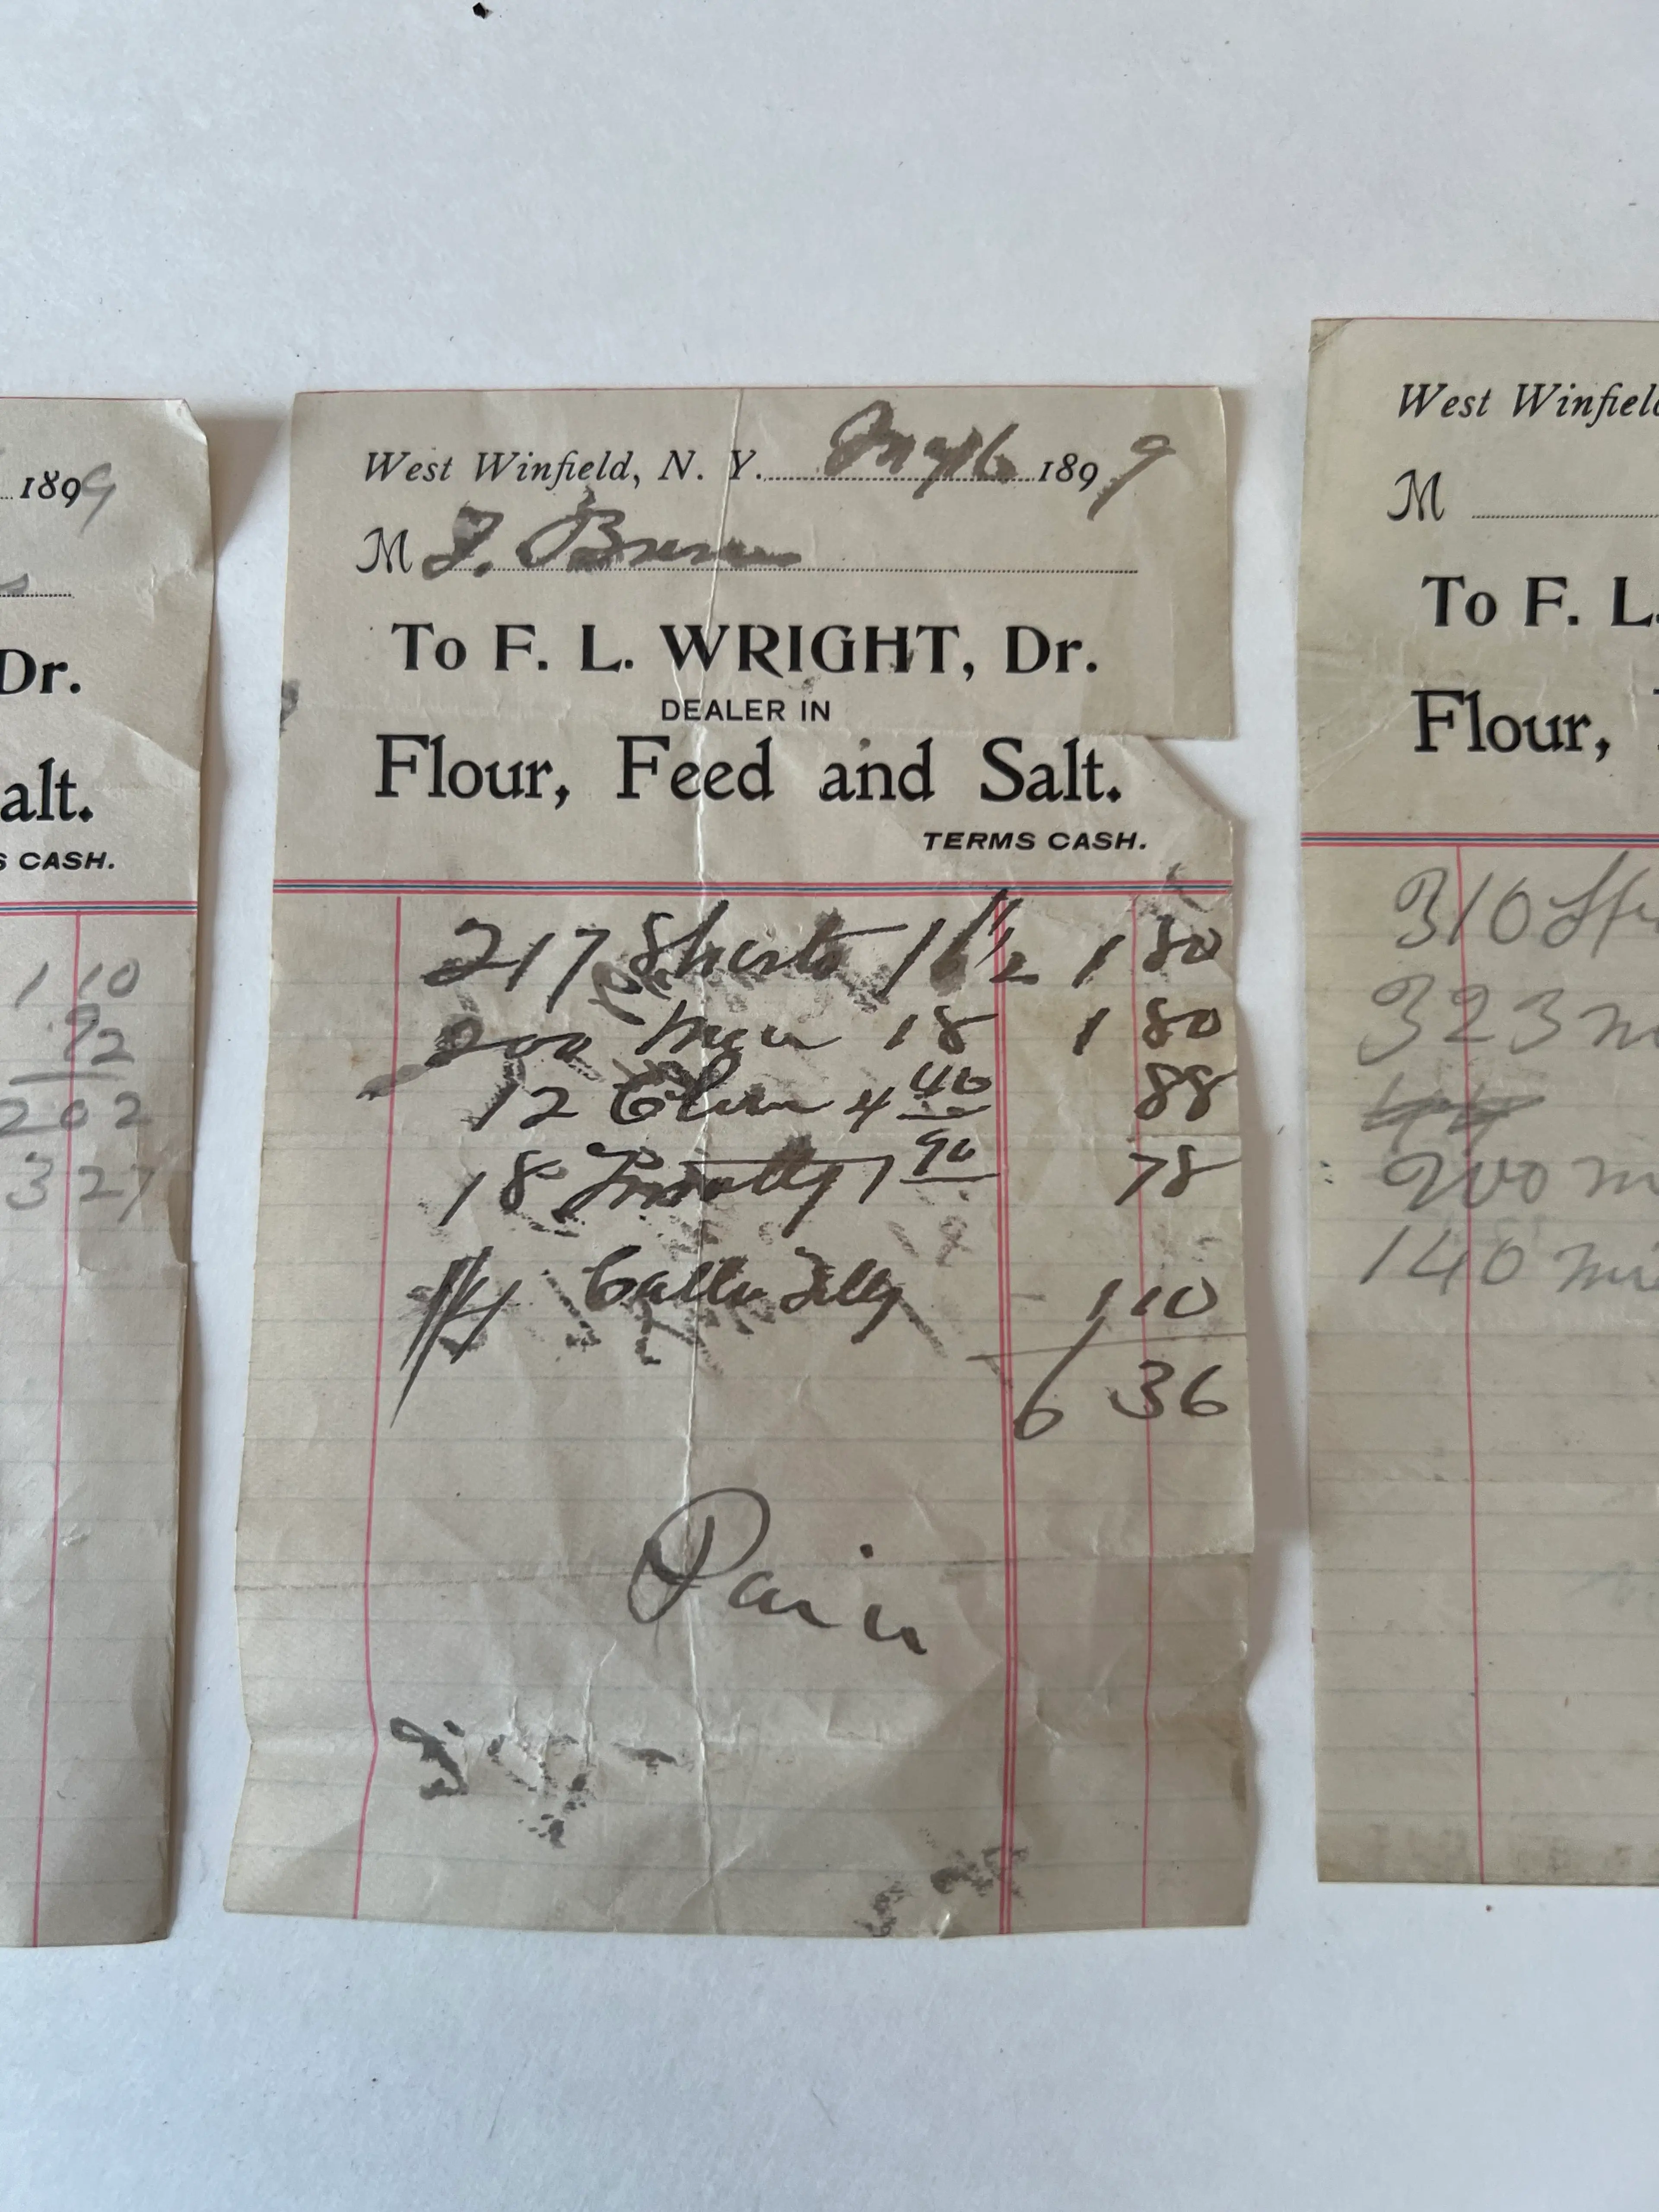 1899
Dr.
alt.
S CASH.
1 10
92
2 02
3 27
West Winfield, N. Y. May 16 1899
M J. Brown
To F. L. WRIGHT, Dr.
DEALER IN
Flour, Feed and Salt.
TERMS CASH.
217 Shorts 16 1/2 1 80
200 18 1 80
12 Clover 4 40 88
18 Timothy 1 90 78
1 10
6 36
Paid
West Winfield
M
To F. L.
Flour,
310
323 m
44
200 m
140